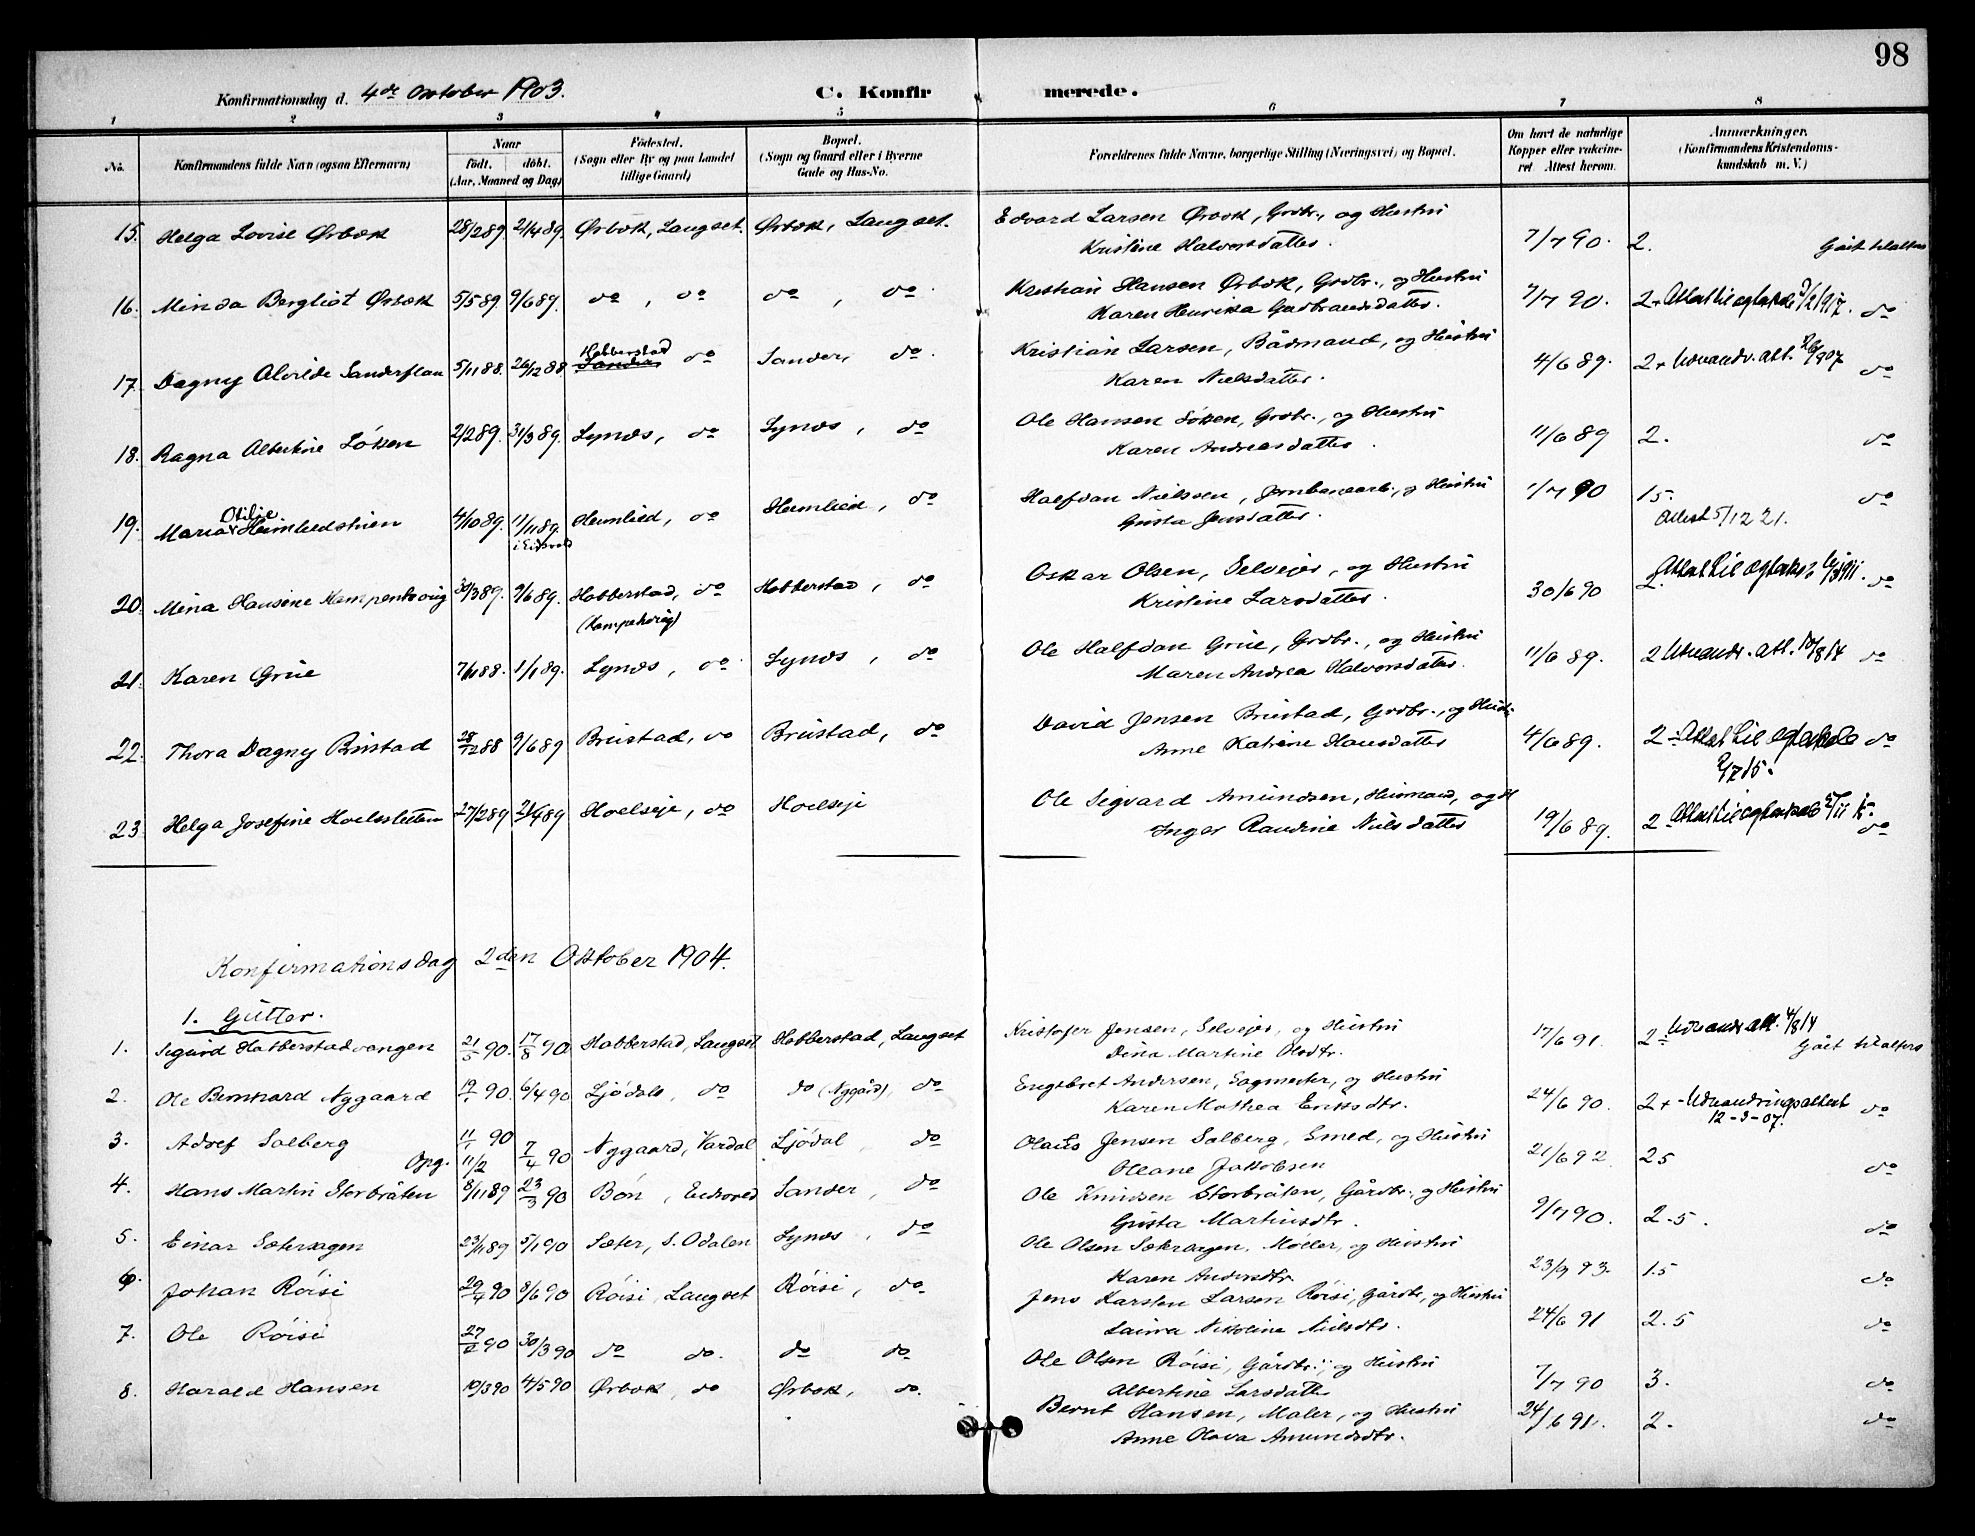 98
Konfirmationsdag d. 4de Oktober 1903. C. Konfirmerede.
1 2 3 4 5 6 7 8
No. Konfirmandens fulde Navn (ogsaa Efternavn) Naar födt. döbt. (Aar, Maaned og Dag) Födested. (Sogn eller By og paa Landet tillige Gaard) Bopæl. (Sogn og Gaard eller i Byerne Gade og Hus-No. Forældrenes fulde Navne, borgerlige Stilling (Næringsvei) og Bopæl. Om havt de naturlige Kopper eller vakcineret Attest herom. Anmærkninger. (Konfirmandens Kristendomskundskab m. V.)
15. Helga Lovise Ørbæk 28/2 89 21/4 89. Ørbæk, Langset. Ørbæk, Langset. Edvard Larsen Ørbæk, Grdbr., og Hustru
Kristine Halvorsdatter. 7/7 90. 2. Gået til alters
16. Minda Bergliot Ørbæk 5/5 89 9/6 89. do, do do, do Kristian Hansen Ørbæk, Grdbr., og Hustru
Karen Henrikka Gudbrandsdatter. 7/7 90. 2+ Attest til egteskab 3/2 1917. do
17. Dagny Alvilde Sanderflaen 5/11 88. 26/12 88 Habberstad Sander do Sander, do. Kristian Larsen, Bådmand, og Hustru
Karen Nielsdatter. 4/6 89. 2+ Udvandr. att. 1907 do
18. Ragna Albertine Löken 2/2 89. 31/3 89. Lynæs, do Lynæs, do Ole Hansen Löken, Grdbr., og Hustru
Karen Andreasdatter. 11/6 89 2. do
19. Maria Otilie Heimliedstuen 4/10 89. 17/11 89. i Eidsvold Heimlied, do Heimlied, do Halfdan Nielsen, Jernbanearb., og Hustru
Gusta Jensdatter. 1/7 90 15. do
Attest 5/12 21.
20. Mina Hansine Kampenhaug 30/3 89. 9/6 89. Habberstad, do Habberstad, do Oskar Olsen, Selvejer, og Hustru
(Kampenhaug) Kristine Larsdatter. 30/6 90 2. Attest til egteskab 1911. do
21. Karen Grue 7/11 88. 1/1 89. Lynæs, do Lynæs, do Ole Halfdan Grue, Grdbr., og Hustru
Maren Andrea Halvorsdatter. 11/6 89. 2 Udvandr. att. 10/8 14 do
22. Thora Dagny Brustad 28/12 88 9/6 89 Brustad, do Brustad, do David Jensen Brustad, Grdbr., og Hustru
Anne Katrine Hansdatter 4/6 89. 2 Attest til egteskab do
2/7 15.
23. Helga Josefine Hoelsletten 27/2 89 21/4 89 Hoelseje, do Hoelseje Ole Sigvard Amundsen, Husmand, og H
Inger Randine Nielsdatter 19/6 89. 2 Attest til egteskab do
Konfirmationsdag 2den Oktober 1904.
1. Gutter.
1. Sigurd Habberstadvangen 21/5 90. 17/8 90 Habberstad, Langset Habberstad, Langset Kristofer Jensen, Selvejer, og Hustru
Dina Martine Olsdtr. 17/6 91. 2 Udvandr. att. 4/8 14 Gået til alters
2. Ole Bernhard Nygaard 19/1 90. 6/4 90 Ljödal, do do (Nygård), do Engebret Andersen, Sagmester, og Hustru
Karen Mathea Eriksdtr. 24/6 90. 2+ Udvandringsattest do
12-3-07.
3. Adolf Solberg 11/1 90 7/4 90 Nygaard, Vardal Ljödal, do Olaus Jensen Solberg, Smed, og Hustru
Opg. 11/2 Oleane Jakobsen 21/6 92 25 do
4. Hans Martin Storbråten 8/11 89 23/3 90 Bön, Eidsvold Sander, do Ole Knudsen Storbråten, Gårdbr., og Hustru
Gusta Martinsdtr. 9/7 90. 2.5. do
5. Einar Sætervagen 23/11 89 5/1 90 Sæter, S. Odalen Lynæs, do Ole Olsen Sætervagen, Möller, og Hustru
Karen Andersdtr. 23/9 93. 1.5 do
6. Johan Röisi 29/4 90 8/6 90 Röisi, Langset Röisi, do. Jens Karsten Larsen Röisi, Gårdbr., og Hustru
Laura Nikoline Nielsdtr. 24/6 91 2.5 do
7. Ole Röisi 27/2 90 30/3 90 do do. do do Ole Olsen Röisi, Gårdbr., og Hustru
Albertine Larsdatter 7/7 90 3. do
8. Harald Hansen 10/3 90 4/5 90 Ørbæk, do Ørbæk, do. Bernt Hansen, Maler, og Hustru
Anne Olava Amundsdtr. 24/6 91. 2. do